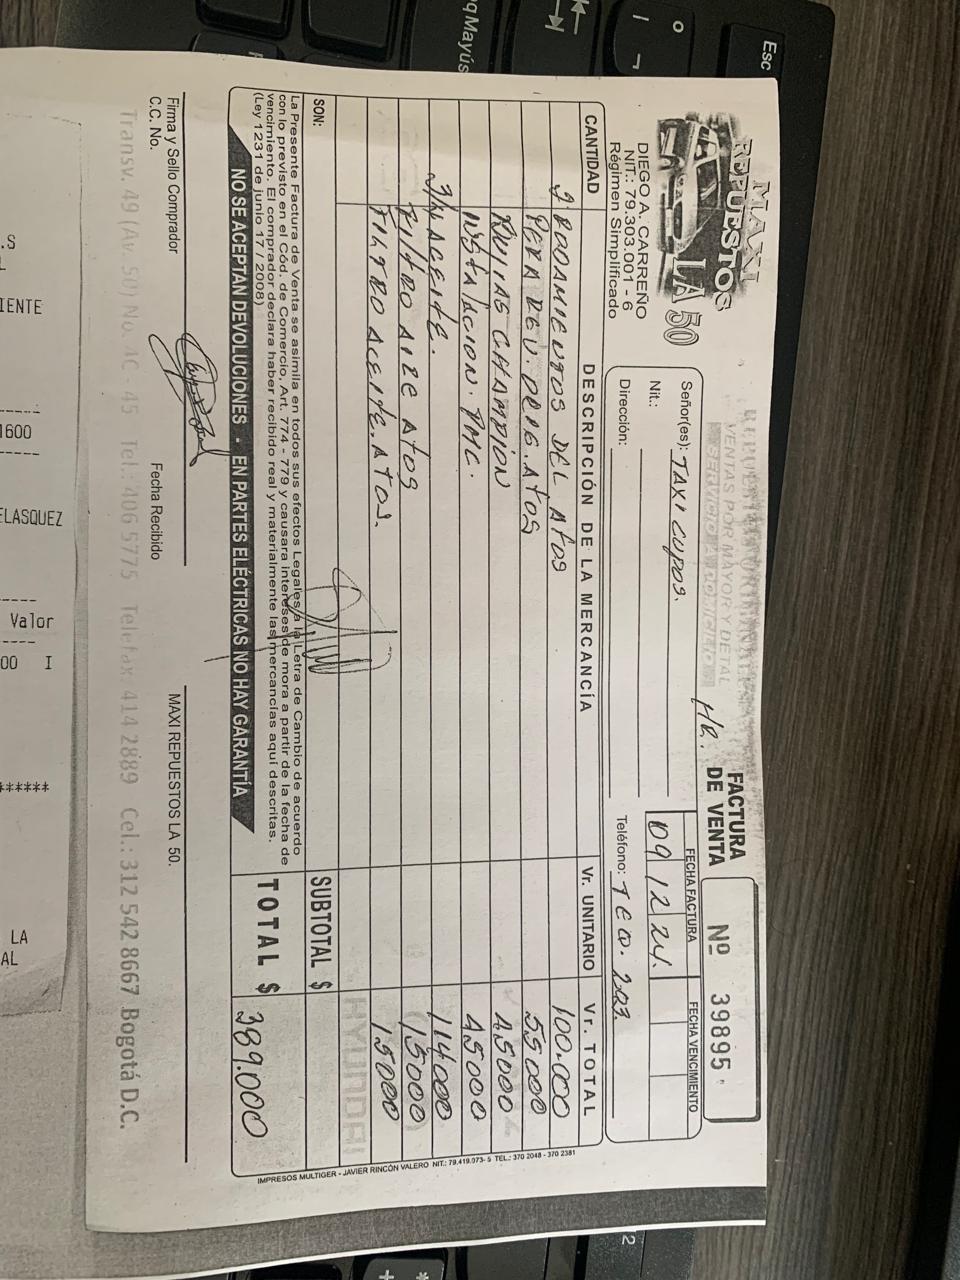 MAXI
REPUESTOS
LA 50
DIEGO A. CARREÑO
NIT.: 79.303.001 - 6
Régimen Simplificado
REPUESTOS ORIGINALES
VENTAS POR MAYOR Y DETAL
SERVICIO A DOMICILIO
HR.
FACTURA
DE VENTA
Nº 39895
Señor(es): TAXI CUPOS.
Nit.:
Dirección:
FECHA FACTURA FECHA VENCIMIENTO
09 12 24.
Teléfono: TEQ. 203.
CANTIDAD DESCRIPCIÓN DE LA MERCANCÍA Vr. UNITARIO Vr. TOTAL
2 RODAMIENTOS DEL ATOS 100.000
PERA REV. ORIG. ATOS 55000
BUJIAS CHAMPION 45000
INSTALACION. PMC. 45000
3/4 ACEITE. 114000
FILTRO AIRE ATOS 15000
FILTRO ACEITE. ATOS. 15000
HYUNDAI
SON:
SUBTOTAL $
La Presente Factura de Venta se asimila en todos sus efectos Legales a la Letra de Cambio de acuerdo
con lo previsto en el Cód. de Comercio, Art. 774 - 779 y causara intereses de mora a partir de la fecha de
vencimiento. El comprador declara haber recibido real y materialmente las mercancías aquí descritas.
(Ley 1231 de junio 17 / 2008)
TOTAL $ 389.000
NO SE ACEPTAN DEVOLUCIONES - EN PARTES ELÉCTRICAS NO HAY GARANTÍA
Firma y Sello Comprador
C.C. No.
Fecha Recibido
MAXI REPUESTOS LA 50.
Transv. 49 (Av. 50) No. 4C - 45 Tel.: 406 5775 Telefax. 414 2889 Cel.: 312 542 8667 Bogotá D.C.
IMPRESOS MULTIGER - JAVIER RINCÓN VALERO NIT.: 79.419.073- 5 TEL.: 370 2048 - 370 2381
Esc
Mayús
.S
IENTE
1600
ELASQUEZ
Valor
00 I
******
LA
AL